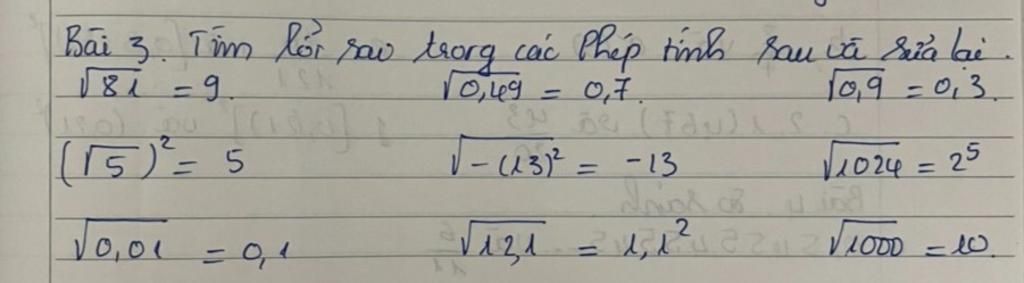 Bài 3. Tìm lỗi sao trong các phép tính sau và sửa lại.
√81 = 9. √0,49 = 0,7. √0,9 = 0,3.
(√5)² = 5 √-(13)² = -13 √1024 = 2⁵
√0,01 = 0,1 √12,1 = 1,1² √1000 = 10.